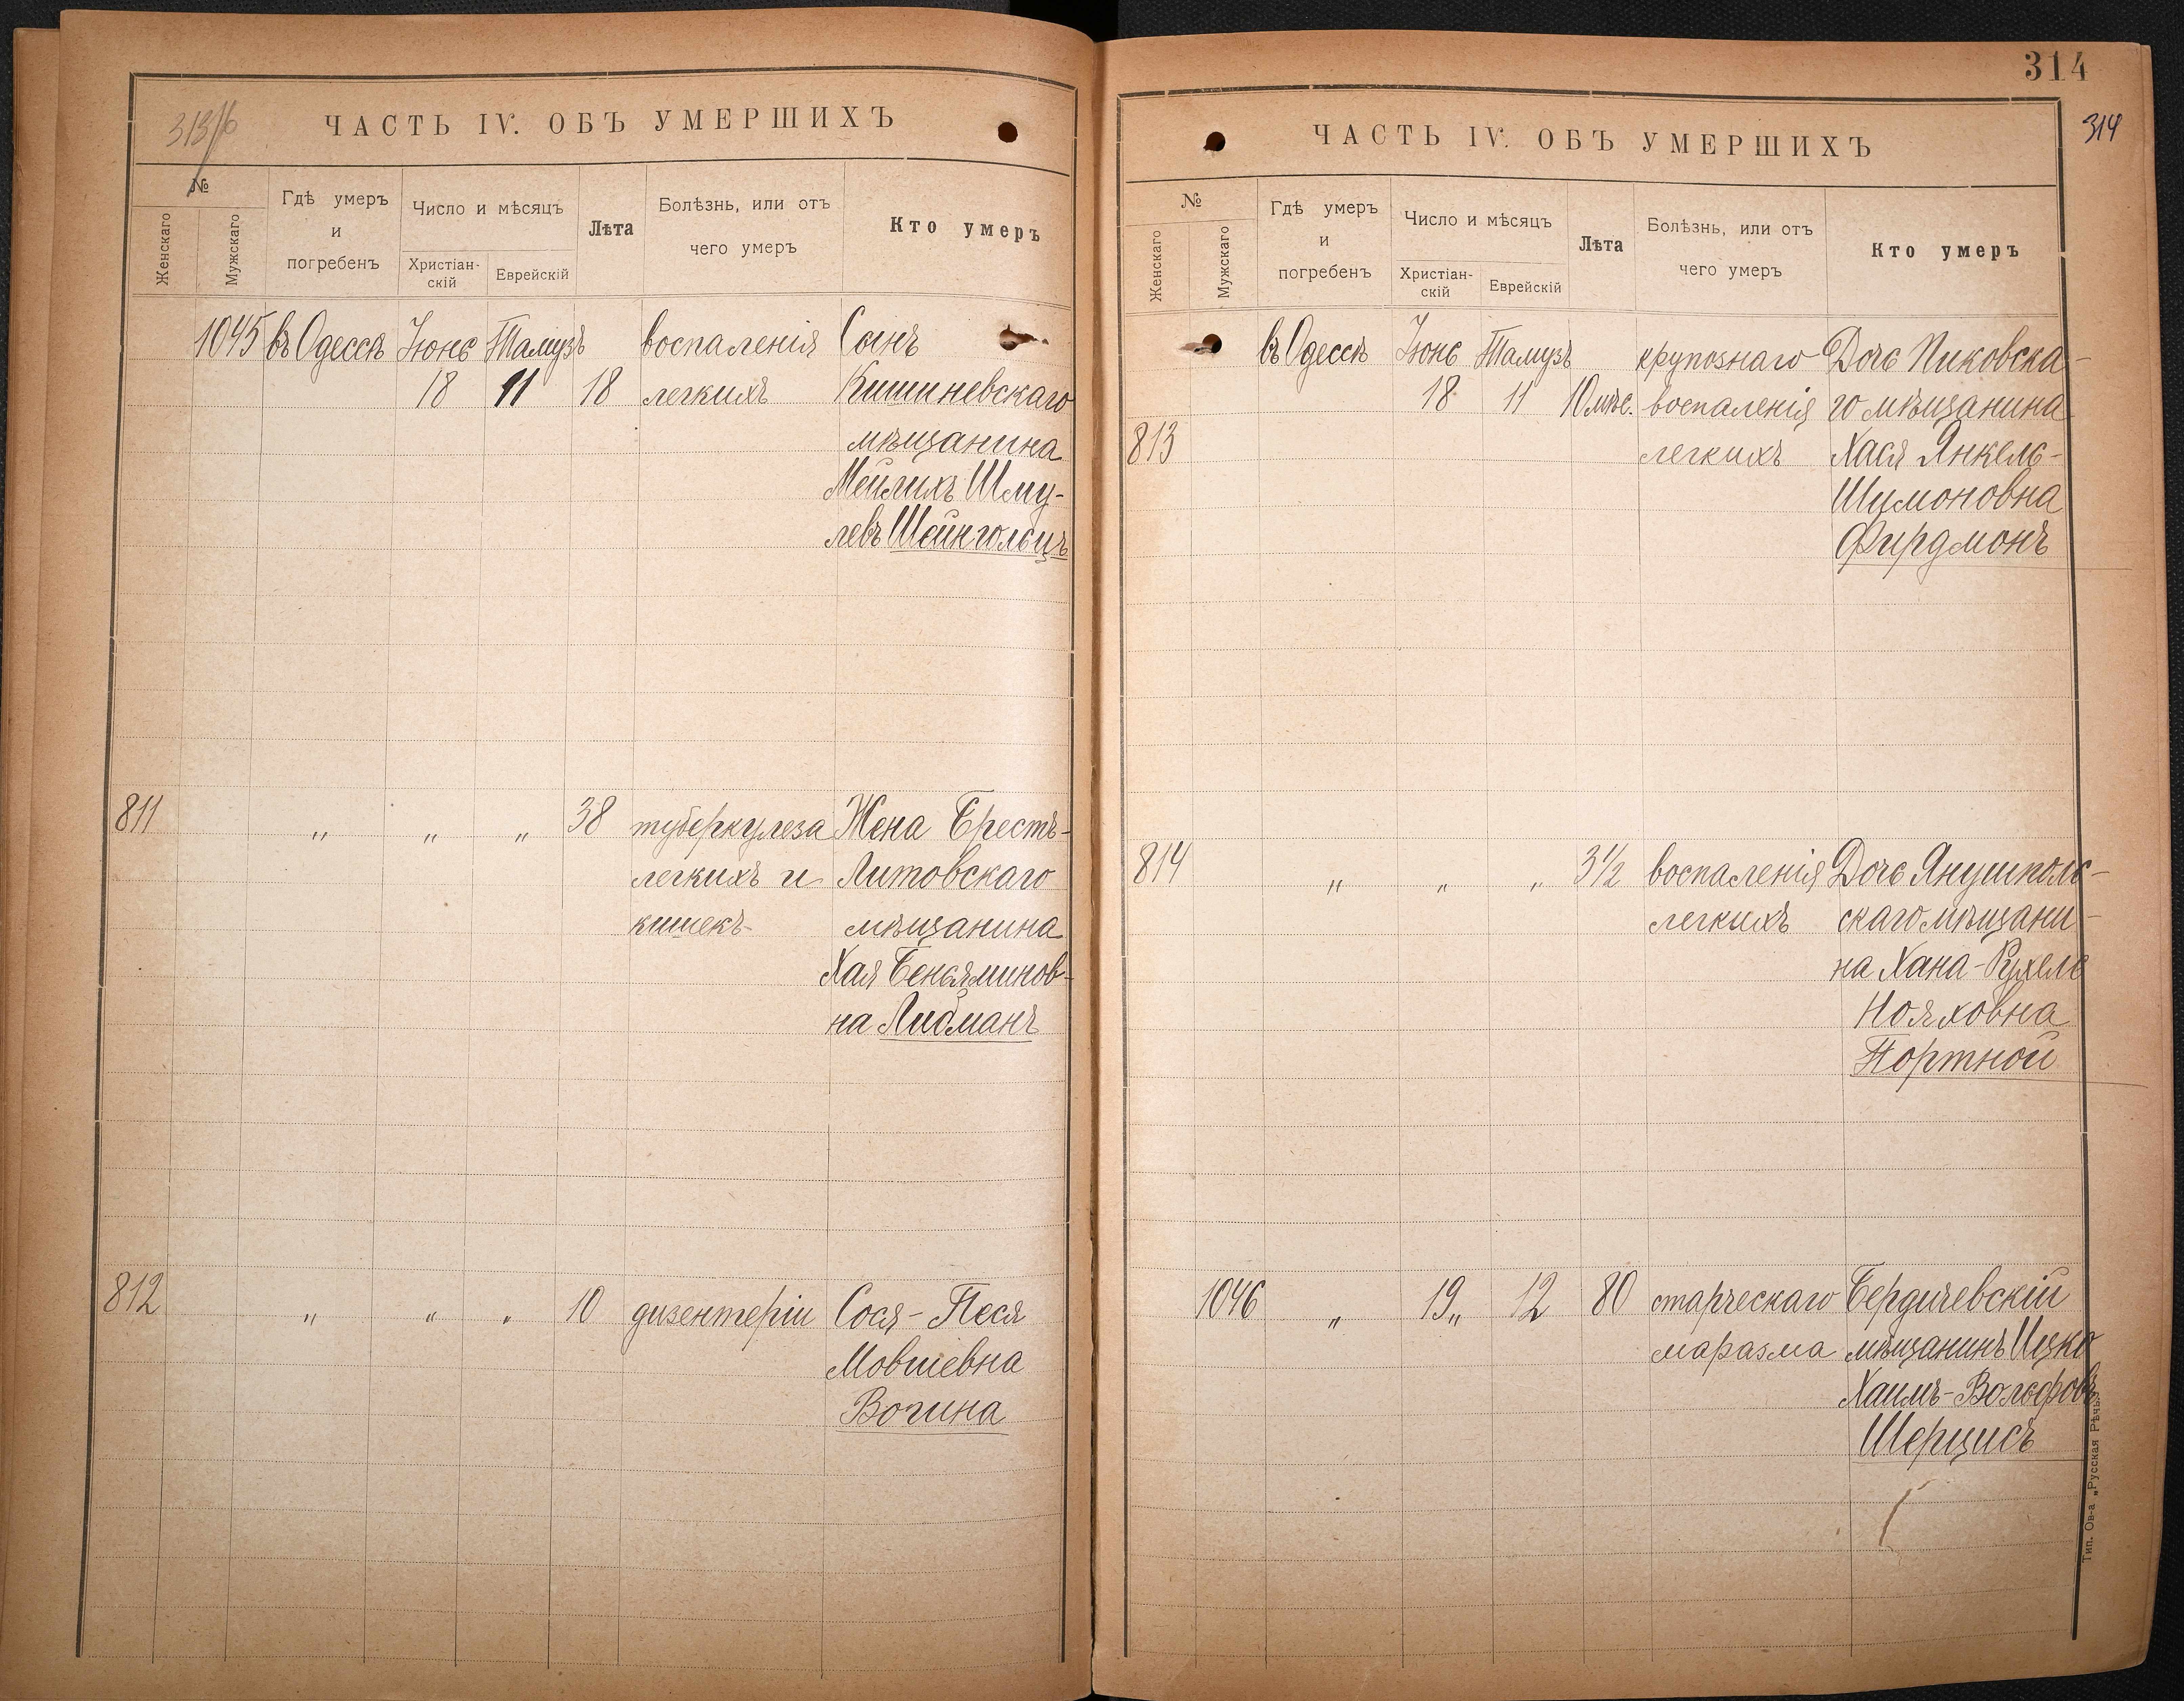 313/б
ЧАСТЬ IV. ОБЪ УМЕРШИХЪ
№
Женскаго
Мужскаго
Гдѣ умеръ
и
погребенъ
Число и мѣсяцъ
Христіан-
скій
Еврейскій
Лѣта
Болѣзнь, или отъ
чего умеръ
Кто умеръ
1045 въ Одессѣ Іюнь Тамузъ воспаленія Сынъ
18 11 18 легкихъ Кишиневскаго
мѣщанина
Мейлихъ Шму-
левъ Шейнгольцъ
811 " " " 38 туберкулеза Жена Брестъ-
легкихъ и Литовскаго
кишекъ мѣщанина
Хая Беньяминов-
на Либманъ
812 " " " 10 дизентеріи Сося-Песя
Мовшевна
Вогина
314
314
ЧАСТЬ IV. ОБЪ УМЕРШИХЪ
№
Женскаго
Мужскаго
Гдѣ умеръ
и
погребенъ
Число и мѣсяцъ
Христіан-
скій
Еврейскій
Лѣта
Болѣзнь, или отъ
чего умеръ
Кто умеръ
въ Одессѣ Іюнь Тамузъ крупознаго Дочь Пиковска-
18 11 10 мѣс. воспаленія го мѣщанина
813 легкихъ Хася Янкель-
Шимоновна
Фирдмонъ
814 " " " 3 1/2 воспаленія Дочь Янушполь-
легкихъ скаго мѣщани-
на Хана-Рухель
Нояховна
Портной
1046 " 19 " 12 80 старческаго Бердичевскій
маразма мѣщанинъ Ицко
Хаимъ-Вольфовъ
Шерцисъ
Тип. Ов-а „Русская Рѣчь“.